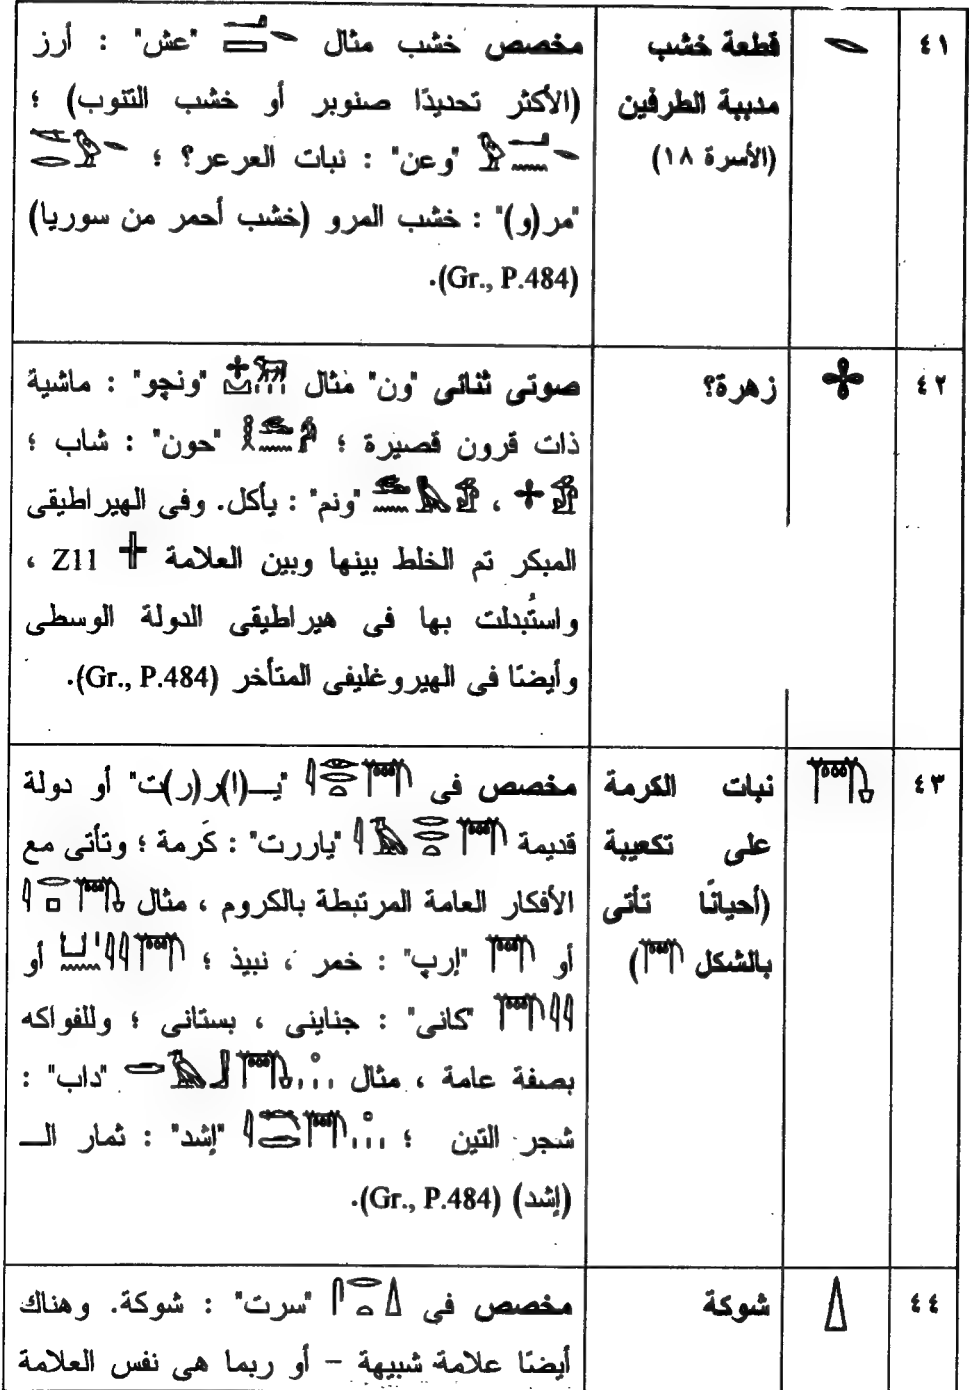 ٤١ قطعة خشب مخصص خشب مثال "عش" : أرز
مدببة الطرفين (الأكثر تحديدًا صنوبر أو خشب التنوب) ؛
(الأسرة ١٨) "وعن" : نبات العرعر؟ ؛
"مر(و)" : خشب المرو (خشب أحمر من سوريا)
(Gr., P.484).
٤٢ زهرة؟ صوتى ثنائى "ون" مثال "ونچو" : ماشية
ذات قرون قصيرة ؛ "حون" : شاب ؛
، "ونم" : يأكل. وفى الهيراطيقى
المبكر تم الخلط بينها وبين العلامة Z11 ،
واستُبدلت بها فى هيراطيقى الدولة الوسطى
وأيضًا فى الهيروغليفى المتأخر (Gr., P.484).
٤٣ نبات الكرمة مخصص فى "يــ(ا)ر(ر)ت" أو دولة
على تكعيبة قديمة "ياررت" : كَرمة ؛ وتأتى مع
(أحيانًا تأتى الأفكار العامة المرتبطة بالكروم ، مثال
بالشكل ) أو "إرپ" : خمر ، نبيذ ؛ أو
"كانى" : جناينى ، بستانى ؛ وللفواكه
بصفة عامة ، مثال "داب" :
شجر التين ؛ "إشد" : ثمار الــ
(إشد) (Gr., P.484).
٤٤ شوكة مخصص فى "سرت" : شوكة. وهناك
أيضًا علامة شبيهة – أو ربما هى نفس العلامة